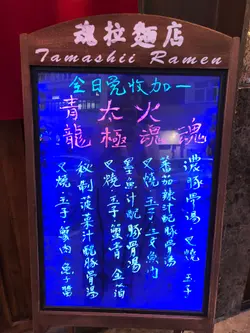 魂拉麵店
Tamashii Ramen
全日免收加一
魂
濃豚骨湯，叉燒 玉子
火魂
蕃茄辣蝦豚骨湯
叉燒 玉子 三文魚肉
太極
墨魚汁蝦豚骨湯
叉燒 玉子 蟹膏 金箔
青龍
秘制菠菜汁蝦豚骨湯
叉燒 玉子 蟹肉 魚子醬